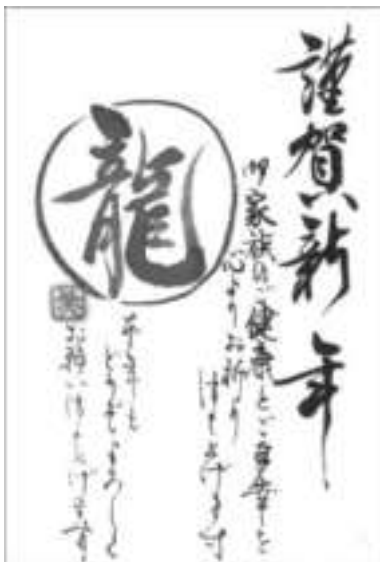 謹賀新年
御家族のご健康とご多幸を
心よりお祈り
申し上げます
龍
本年も
どうぞよろしく
お願い申し上げます